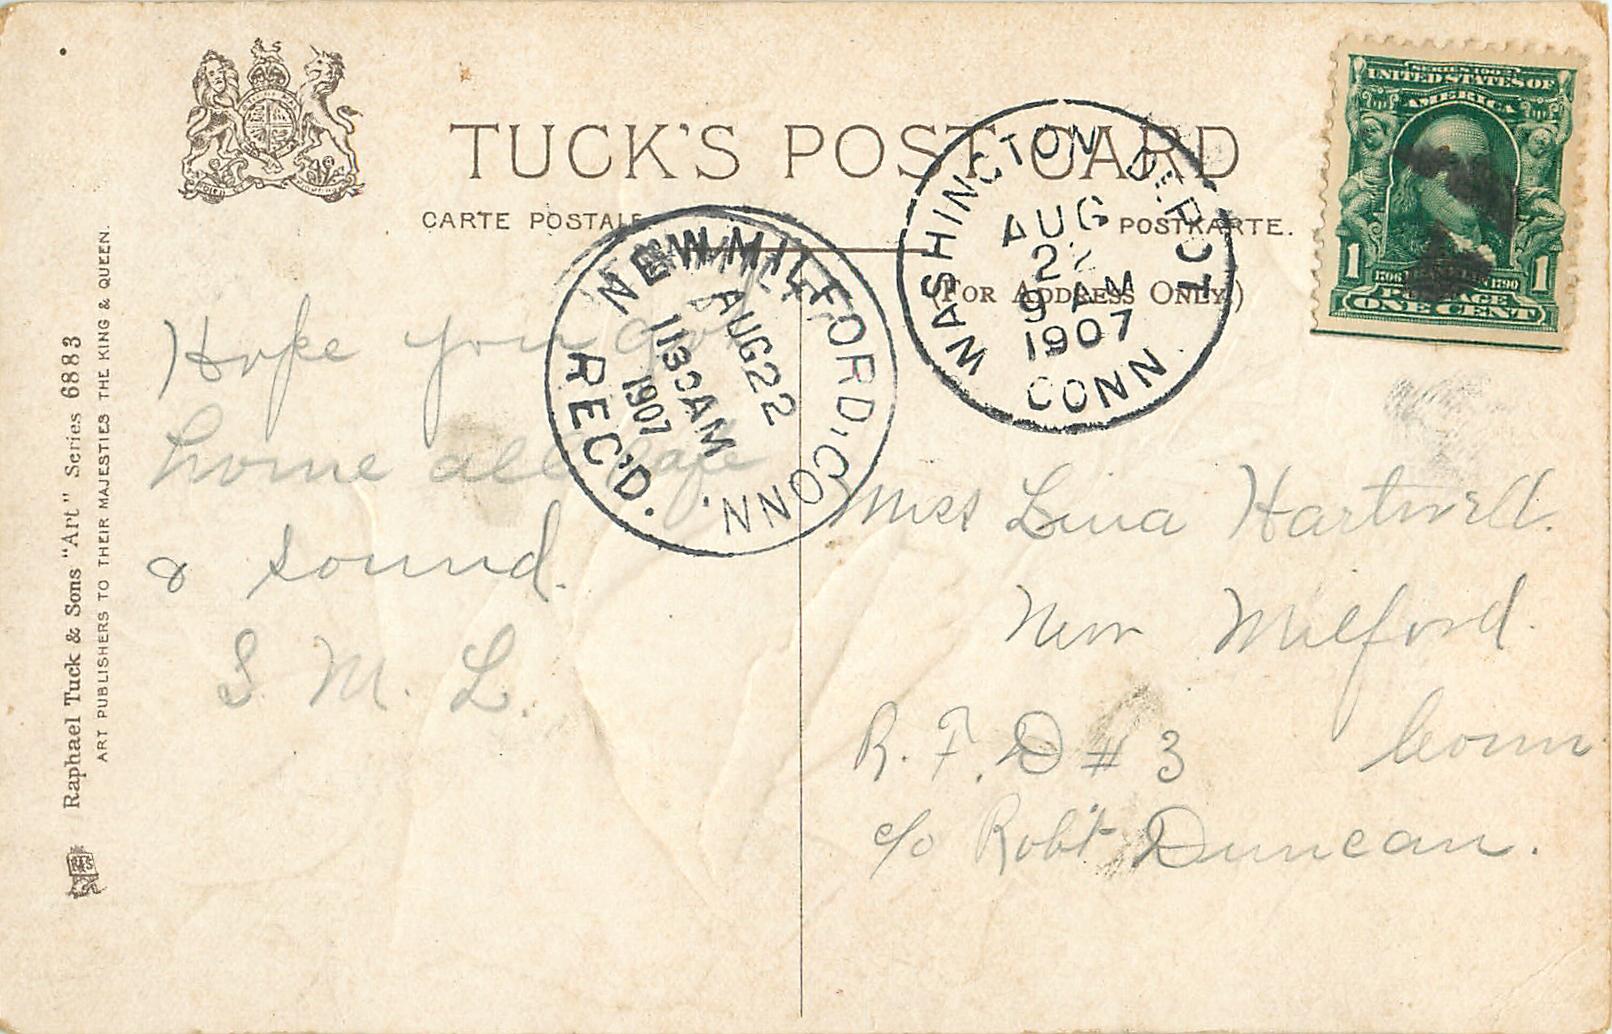 TUCK'S POST CARD
CARTE POSTALE
POSTKARTE.
(FOR ADDRESS ONLY.)
SERIES 1902
UNITED STATES OF
AMERICA
1 1
POSTAGE
ONE CENT
WASHINGTON DEPOT
AUG
22
9 AM
1907
CONN.
NEW MILFORD, CONN.
AUG 22
1130AM
1907
REC'D.
Hope you got
home all safe
& sound.
S. M. L.
Miss Lina Hartwell.
New Milford.
R. F. D # 3 Conn
c/o Robt Duncan.
Raphael Tuck & Sons "Art" Series 6883
ART PUBLISHERS TO THEIR MAJESTIES THE KING & QUEEN.